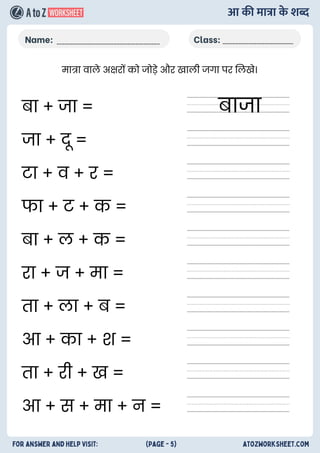 A to Z WORKSHEET
आ की मात्रा के शब्द
Name:
Class:
मात्रा वाले अक्षरों को जोड़े और खाली जगा पर लिखे।
बा + जा = बाजा
जा + दू =
टा + व + र =
फा + ट + क =
बा + ल + क =
रा + ज + मा =
ता + ला + ब =
आ + का + श =
ता + री + ख =
आ + स + मा + न =
FOR ANSWER AND HELP VISIT: (PAGE - 5) ATOZWORKSHEET.COM